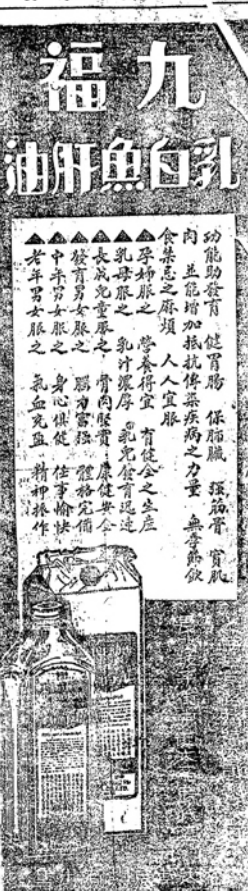 九福
乳白魚肝油
功能助發育 健胃腸 保肺臟 强筋骨 實肌
肉 並能增加抵抗傳染疾病之力量 無季節飲
食禁忌之麻煩 人人宜服
▲孕婦服之 營養得宜 有健全之生産
▲乳母服之 乳汁濃厚 乳兒發育迅速
▲長成兒童服之 骨肉堅實 康健安全
▲發育男女服之 腦力富强 體格完備
▲中年男女服之 身心俱健 任事愉快
▲老年男女服之 氣血充盈 精神振作